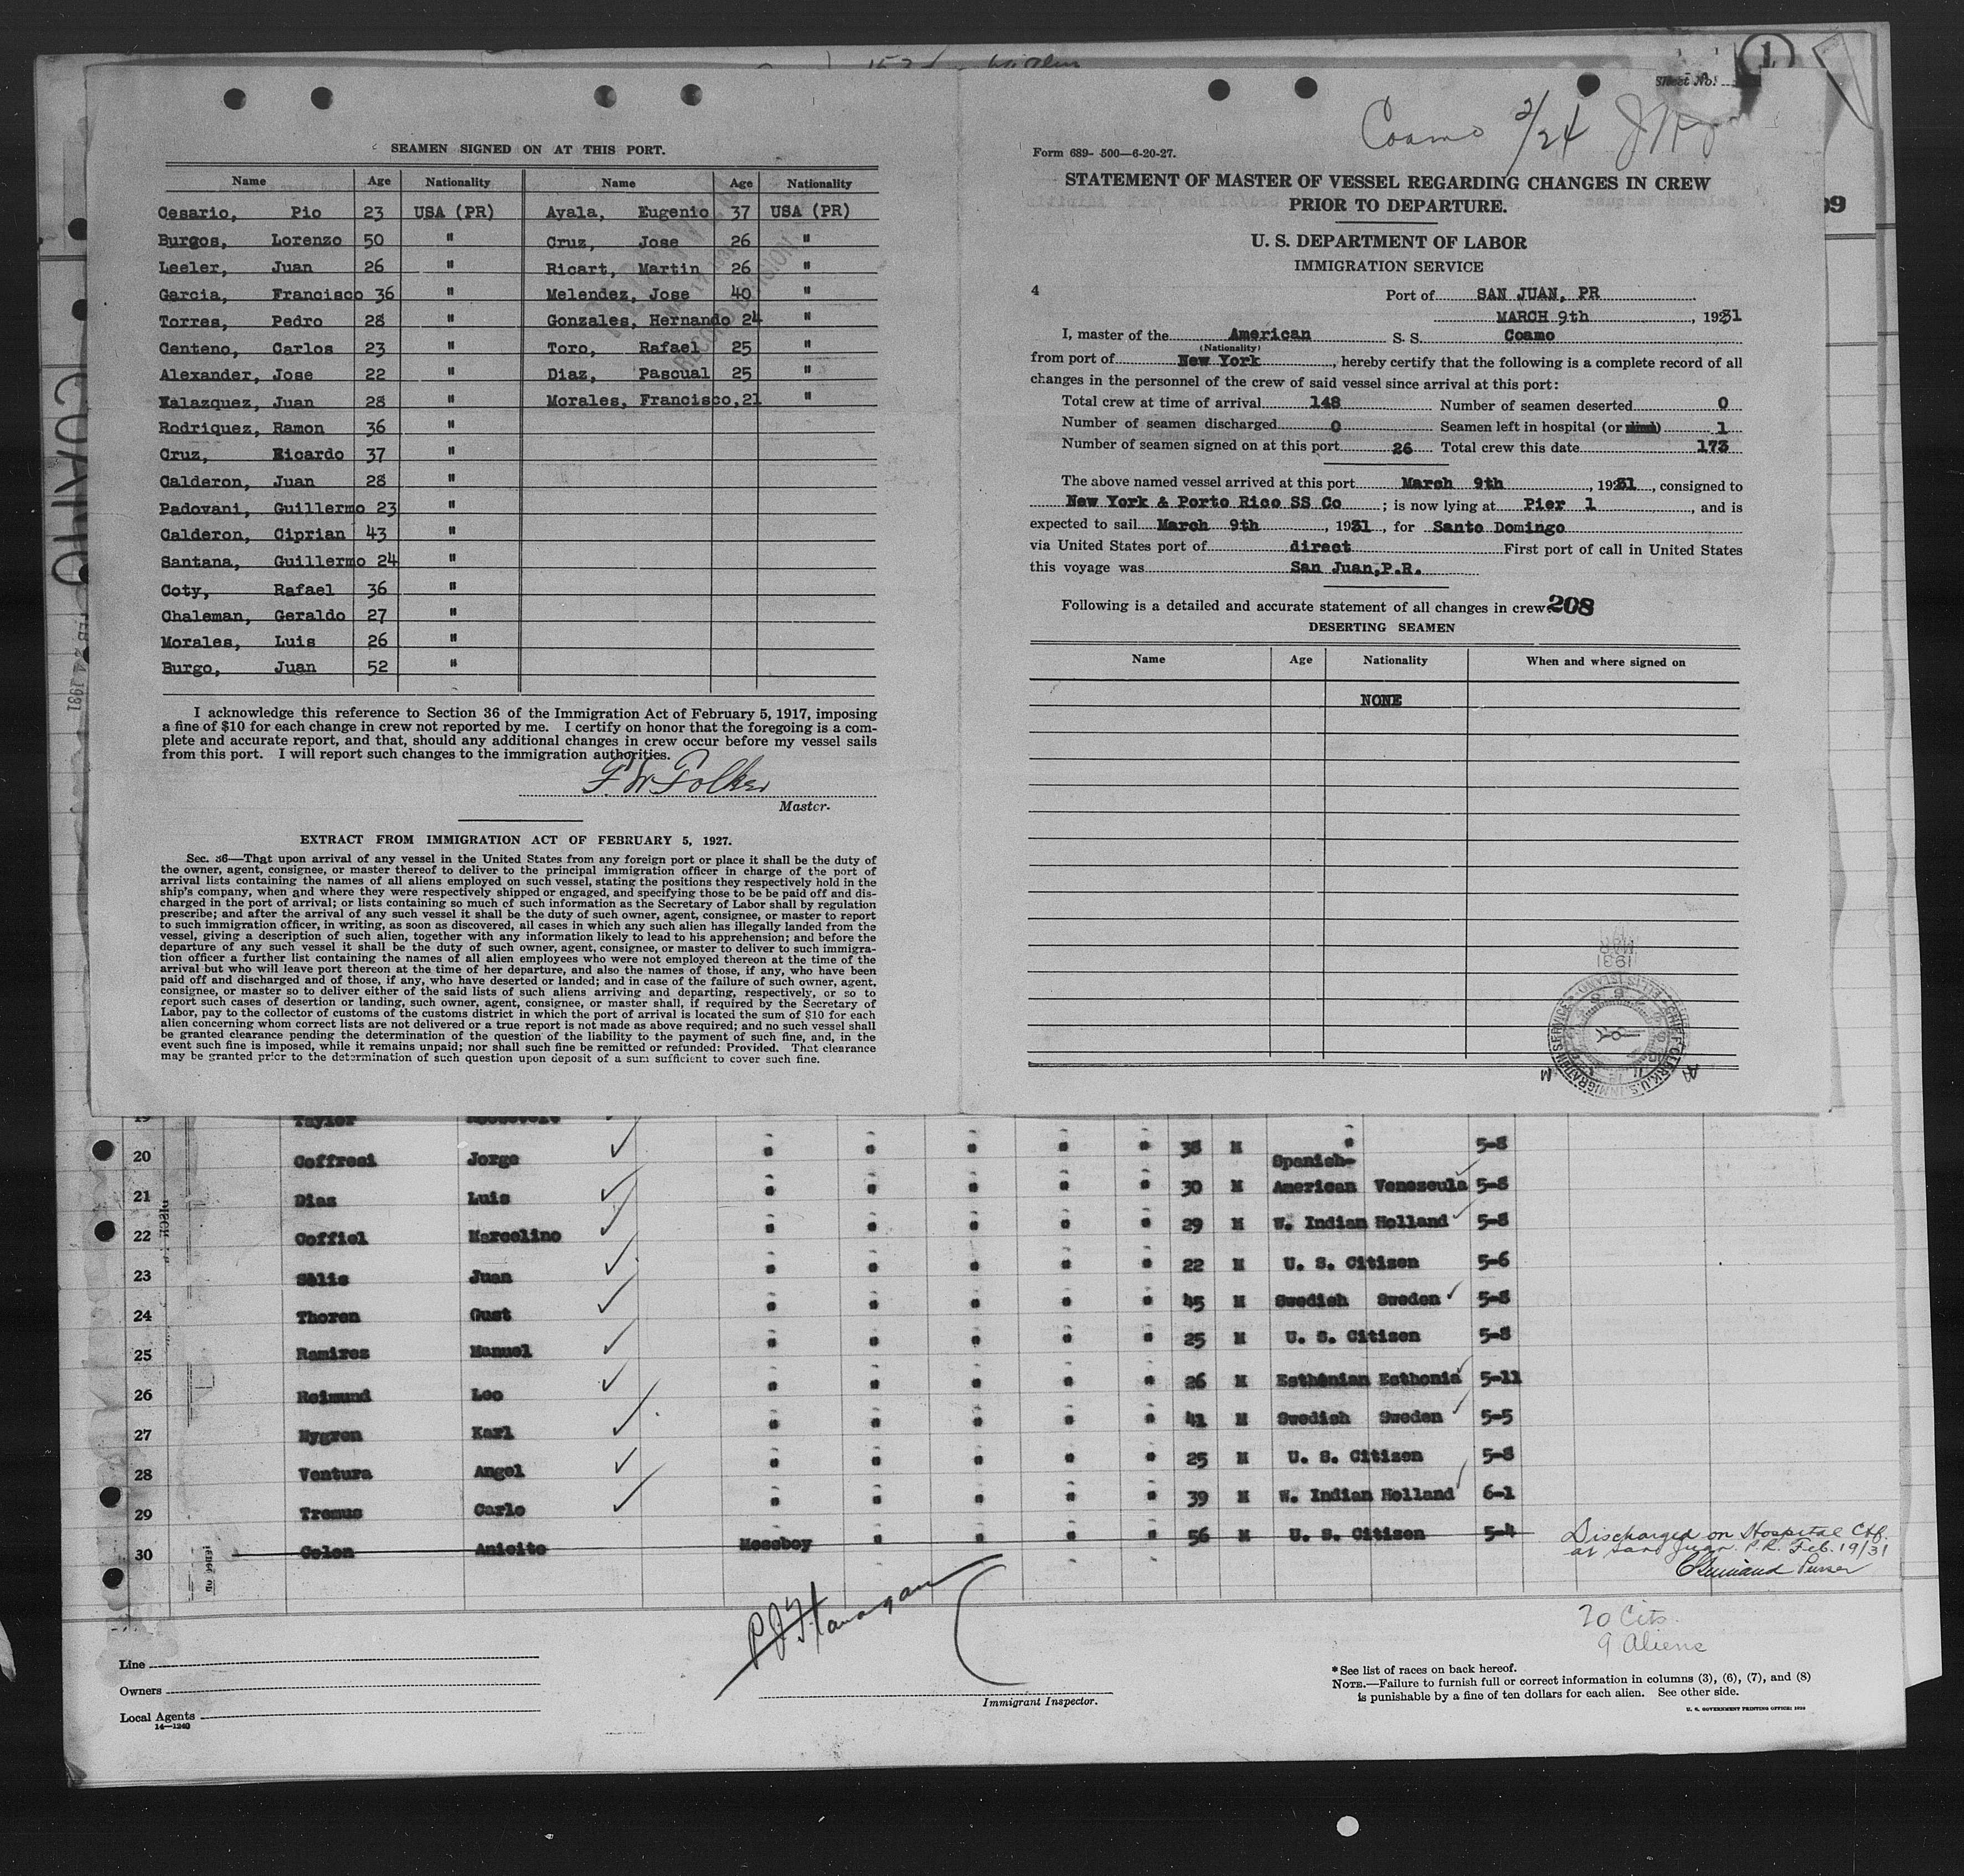 SEAMEN SIGNED ON AT THIS PORT.
Name Age Nationality Name Age Nationality
Cesario, Pio 23 USA (PR) Ayala, Eugenio 37 USA (PR)
Burgos, Lorenzo 50 " Cruz, Jose 26 "
Leeler, Juan 26 " Ricart, Martin 26 "
Garcia, Francisco 36 " Melendez, Jose 40 "
Torres, Pedro 28 " Gonzales, Hernando 24 "
Centeno, Carlos 23 " Toro, Rafael 25 "
Alexander, Jose 22 " Diaz, Pascual 25 "
Valazquez, Juan 28 " Morales, Francisco, 21 "
Rodriquez, Ramon 36 "
Cruz, Ricardo 37 "
Calderon, Juan 28 "
Padovani, Guillermo 23 "
Calderon, Ciprian 43 "
Santana, Guillermo 24 "
Coty, Rafael 36 "
Chaleman, Geraldo 27 "
Morales, Luis 26 "
Burgo, Juan 52 "
I acknowledge this reference to Section 36 of the Immigration Act of February 5, 1917, imposing
a fine of $10 for each change in crew not reported by me. I certify on honor that the foregoing is a com-
plete and accurate report, and that, should any additional changes in crew occur before my vessel sails
from this port. I will report such changes to the immigration authorities.
F W Folker
Master.
EXTRACT FROM IMMIGRATION ACT OF FEBRUARY 5, 1927.
Sec. 36—That upon arrival of any vessel in the United States from any foreign port or place it shall be the duty of
the owner, agent, consignee, or master thereof to deliver to the principal immigration officer in charge of the port of
arrival lists containing the names of all aliens employed on such vessel, stating the positions they respectively hold in the
ship's company, when and where they were respectively shipped or engaged, and specifying those to be be paid off and dis-
charged in the port of arrival; or lists containing so much of such information as the Secretary of Labor shall by regulation
prescribe; and after the arrival of any such vessel it shall be the duty of such owner, agent, consignee, or master to report
to such immigration officer, in writing, as soon as discovered, all cases in which any such alien has illegally landed from the
vessel, giving a description of such alien, together with any information likely to lead to his apprehension; and before the
departure of any such vessel it shall be the duty of such owner, agent, consignee, or master to deliver to such immigra-
tion officer a further list containing the names of all alien employees who were not employed thereon at the time of the
arrival but who will leave port thereon at the time of her departure, and also the names of those, if any, who have been
paid off and discharged and of those, if any, who have deserted or landed; and in case of the failure of such owner, agent,
consignee, or master so to deliver either of the said lists of such aliens arriving and departing, respectively, or so to
report such cases of desertion or landing, such owner, agent, consignee, or master shall, if required by the Secretary of
Labor, pay to the collector of customs of the customs district in which the port of arrival is located the sum of $10 for each
alien concerning whom correct lists are not delivered or a true report is not made as above required; and no such vessel shall
be granted clearance pending the determination of the question of the liability to the payment of such fine, and, in the
event such fine is imposed, while it remains unpaid; nor shall such fine be remitted or refunded: Provided. That clearance
may be granted prior to the determination of such question upon deposit of a sum sufficient to cover such fine.
1
Sheet No.
Coamo 2/24
Form 689- 500—6-20-27.
STATEMENT OF MASTER OF VESSEL REGARDING CHANGES IN CREW
PRIOR TO DEPARTURE.
U. S. DEPARTMENT OF LABOR
IMMIGRATION SERVICE
4 Port of SAN JUAN, PR
MARCH 9th, 1931
I, master of the American S. S. Coamo
(Nationality)
from port of New York, hereby certify that the following is a complete record of all
changes in the personnel of the crew of said vessel since arrival at this port:
Total crew at time of arrival 148 Number of seamen deserted 0
Number of seamen discharged 0 Seamen left in hospital (or died) 1
Number of seamen signed on at this port 26 Total crew this date 173
The above named vessel arrived at this port March 9th, 1931, consigned to
New York & Porto Rico SS Co; is now lying at Pier 1, and is
expected to sail March 9th, 1931, for Santo Domingo
via United States port of direct First port of call in United States
this voyage was San Juan,P.R.
Following is a detailed and accurate statement of all changes in crew 208
DESERTING SEAMEN
Name Age Nationality When and where signed on
NONE
COAMO
FEB 24 1931
19 Taylor Roosevelt
20 Coffresi Jorge " " " " " 38 M " 5-8
21 Diaz Luis " " " " " 30 M Spanish-American Venezeula 5-8
22 Coffiel Marcelino " " " " " 29 M W. Indian Holland 5-8
23 Solis Juan " " " " " 22 M U. S. Citizen 5-6
24 Thoren Gust " " " " " 45 M Swedish Sweden 5-8
25 Ramires Manuel " " " " " 25 M U. S. Citizen 5-8
26 Reimund Leo " " " " " 26 M Esthonian Esthonia 5-11
27 Nygren Karl " " " " " 41 M Swedish Sweden 5-5
28 Ventura Angel " " " " " 25 M U. S. Citizen 5-8
29 Tromus Carlo " " " " " 39 M W. Indian Holland 6-1
30 Colon Anicito Messboy " " " " 56 M U. S. Citizen 5-4
Discharged on Hospital Ctf.
at San Juan. P.R. Feb. 19/31
Purser
P J Flanagan
20 Cits.
9 Aliens
Line
Owners
Local Agents
14—1240
Immigrant Inspector.
*See list of races on back hereof.
NOTE.—Failure to furnish full or correct information in columns (3), (6), (7), and (8)
is punishable by a fine of ten dollars for each alien. See other side.
U. S. GOVERNMENT PRINTING OFFICE: